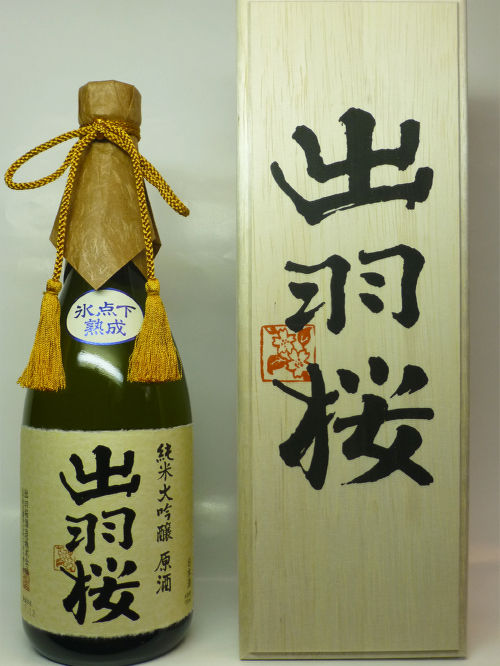 氷点下
熟成
純米大吟醸 原酒
出羽桜
出羽桜